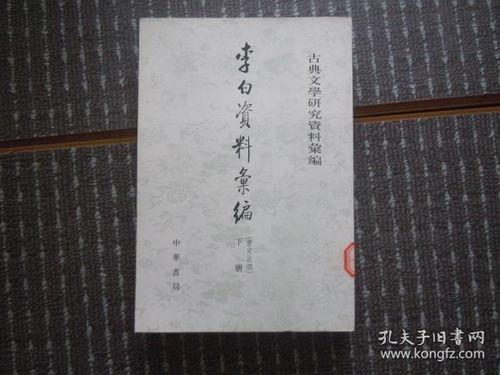 古典文學研究資料彙編
李白資料彙編
(唐宋之部)
下册
中華書局
孔夫子旧書网
www.kongfz.com